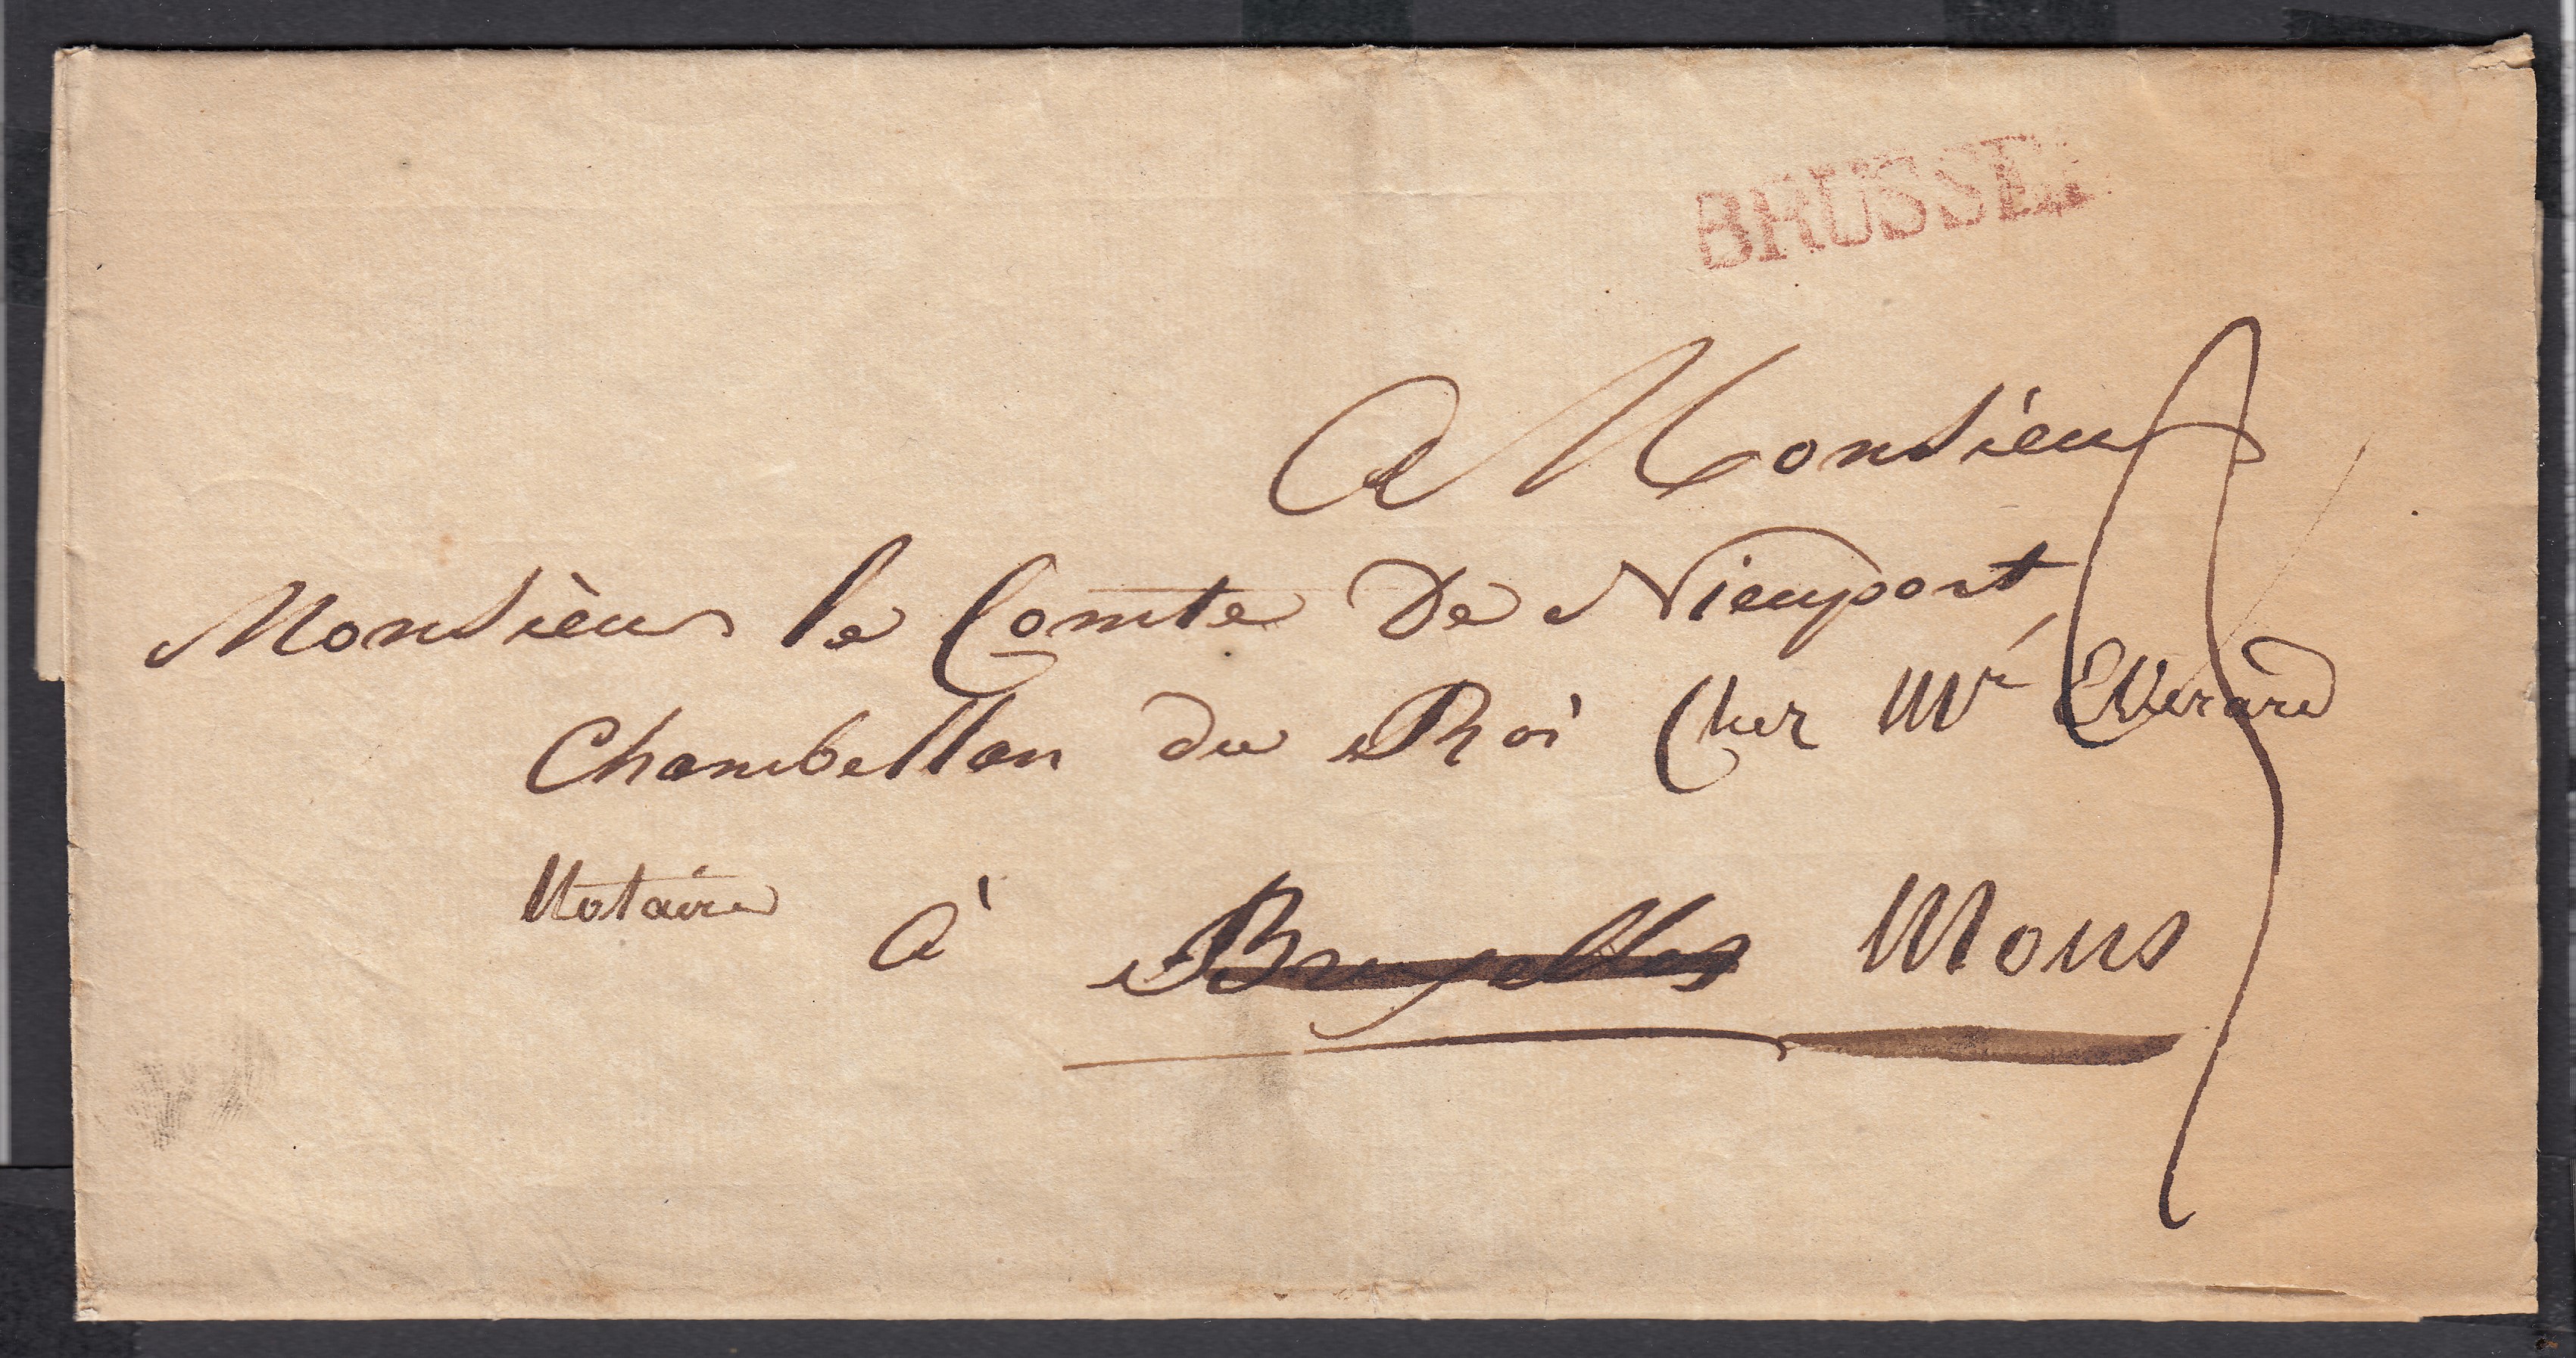 BRUSSEL
A Monsieur
Monsieur le Comte De Nieuport
Chambellan du Roi Chez Mr Everard
Notaire à Bruxelles Mons